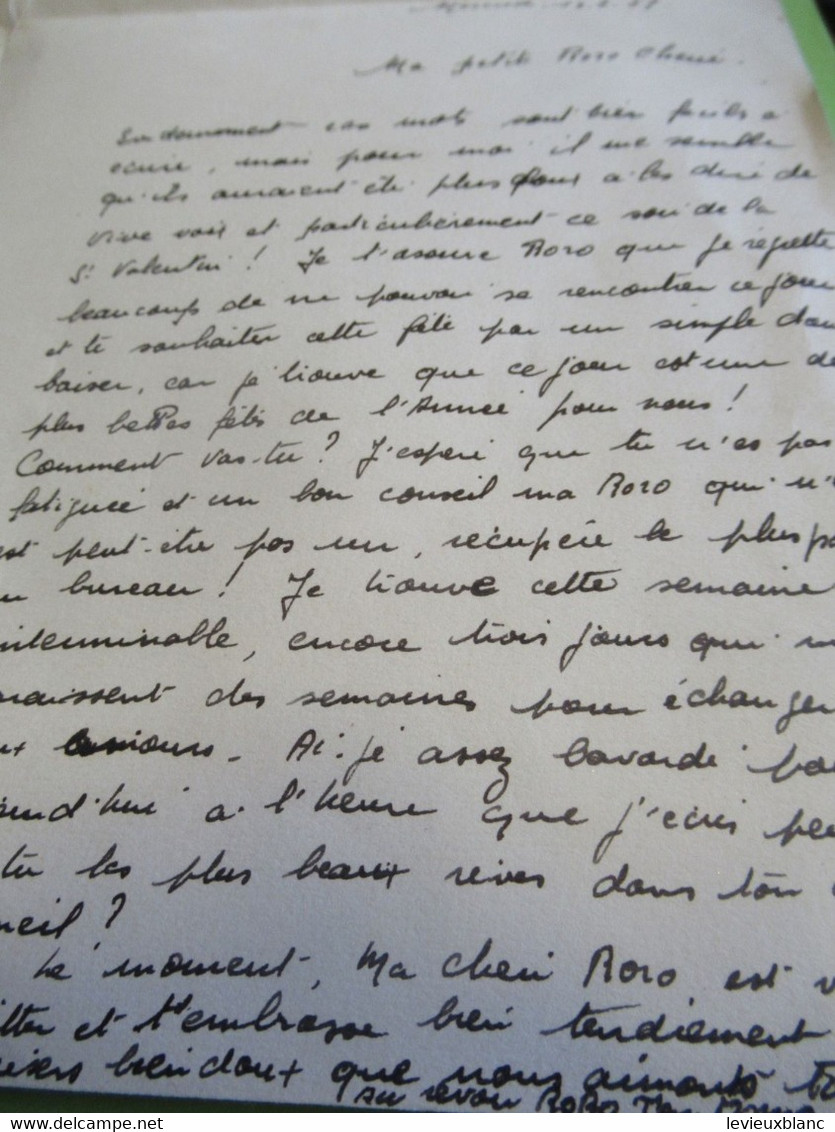 Ma petite Roro Cheri.
Evidemment ces mots sont bien facils a
ecrire, mais pour moi il me semble
qu'ils auraient été plus doux a les dire de
vive voix et particulièrement ce soir de la
St Valentin! Je t'assure Roro que je regrette
beaucoups de ne pouvoir se rencontrer ce jour
et te souhaiter cette fête par un simple doux
baiser, car je trouve que ce jour est une de
plus belles fêtes de l'Année pour nous!
Comment vas-tu? J'espère que tu n'es pas
fatiguée et un bon conseil ma Roro qui n'
est peut-être pas un, récupère le plus
bureau! Je trouve cette semaine
interminable, encore trois jours qui
raissent des semaines pour échanger
amours. Ai-je assez bavardé
jourd'hui a l'heure que j'ecris
tu les plus beaux reves dans ton
meil?
Le moment, Ma cheri Roro est
itter et t'embrasse bien tendrement
bien doux que nous aimons
au revoir RoRo
levieuxblanc